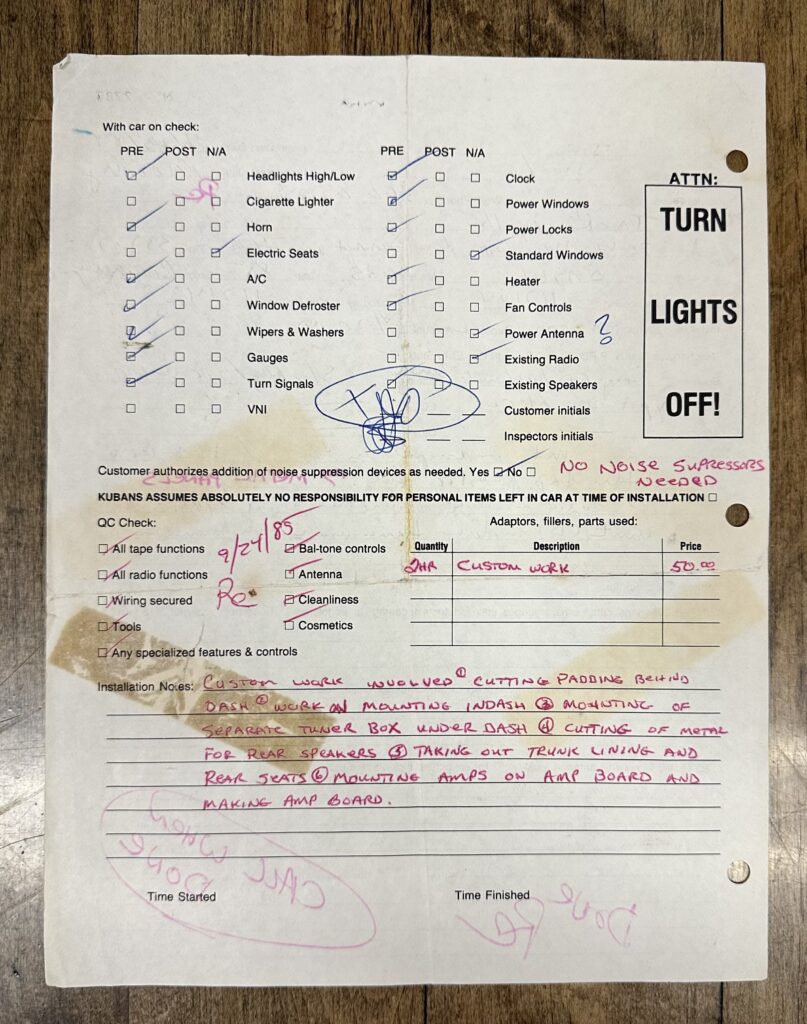 With car on check:
PRE POST N/A
Headlights High/Low
Cigarette Lighter
Horn
Electric Seats
A/C
Window Defroster
Wipers & Washers
Gauges
Turn Signals
VNI
PRE POST N/A
Clock
Power Windows
Power Locks
Standard Windows
Heater
Fan Controls
Power Antenna ?
Existing Radio
Existing Speakers
Customer initials
Inspectors initials
ATTN:
TURN
LIGHTS
OFF!
Customer authorizes addition of noise suppression devices as needed. Yes No
NO NOISE SUPRESSORS
NEEDED
KUBANS ASSUMES ABSOLUTELY NO RESPONSIBILITY FOR PERSONAL ITEMS LEFT IN CAR AT TIME OF INSTALLATION
QC Check:
All tape functions
All radio functions
Wiring secured
Tools
Any specialized features & controls
9/24/85
Bal-tone controls
Antenna
Cleanliness
Cosmetics
Adaptors, fillers, parts used:
Quantity Description Price
2HR CUSTOM WORK 50.00
Installation Notes: CUSTOM WORK INVOLVED ① CUTTING PADDING BEHIND
DASH ② WORK ON MOUNTING INDASH ③ MOUNTING OF
SEPARATE TUNER BOX UNDER DASH ④ CUTTING OF METAL
FOR REAR SPEAKERS ⑤ TAKING OUT TRUNK LINING AND
REAR SEATS ⑥ MOUNTING AMPS ON AMP BOARD AND
MAKING AMP BOARD.
CALL WHEN
DONE
Time Started
Time Finished
DONE